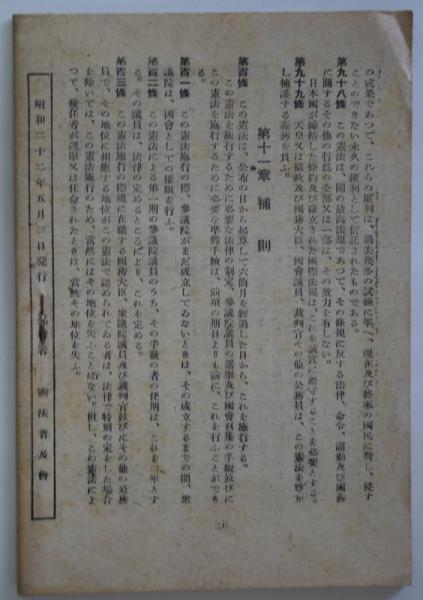 の成果であつて、これらの權利は、過去幾多の試練に堪へ、現在及び將來の國民に對し、侵す
ことのできない永久の權利として信託されたものである。
第九十八條　この憲法は、國の最高法規であつて、その條規に反する法律、命令、詔勅及び國務
に關するその他の行爲の全部又は一部は、その效力を有しない。
日本國が締結した條約及び確立された國際法規は、これを誠實に遵守することを必要とする。
第九十九條　天皇又は攝政及び國務大臣、國會議員、裁判官その他の公務員は、この憲法を尊重
し擁護する義務を負ふ。
第十一章　補則
第百條　この憲法は、公布の日から起算して六箇月を經過した日から、これを施行する。
この憲法を施行するために必要な法律の制定、參議院議員の選擧及び國會召集の手續竝びに
この憲法を施行するために必要な準備手續は、前項の期日よりも前に、これを行ふことができ
る。
第百一條　この憲法施行の際、參議院がまだ成立してゐないときは、その成立するまでの間、衆
議院は、國會としての權限を行ふ。
第百二條　この憲法による第一期の參議院議員のうち、その半數の者の任期は、これを三年とす
る。その議員は、法律の定めるところにより、これを定める。
第百三條　この憲法施行の際現に在職する國務大臣、衆議院議員及び裁判官竝びにその他の公務
員で、その地位に相應する地位がこの憲法で認められてゐる者は、法律で特別の定をした場合
を除いては、この憲法施行のため、當然にはその地位を失ふことはない。但し、この憲法によ
つて、後任者が選擧又は任命されたときは、當然その地位を失ふ。
昭和二十二年五月三日發行　者　憲法普及會